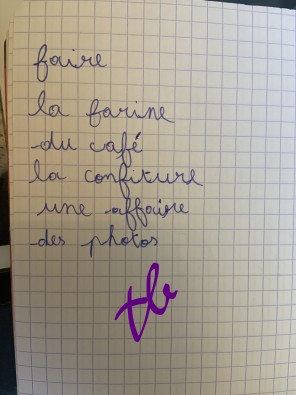 faire
la farine
du café
la confiture
une affaire
des photos
tb